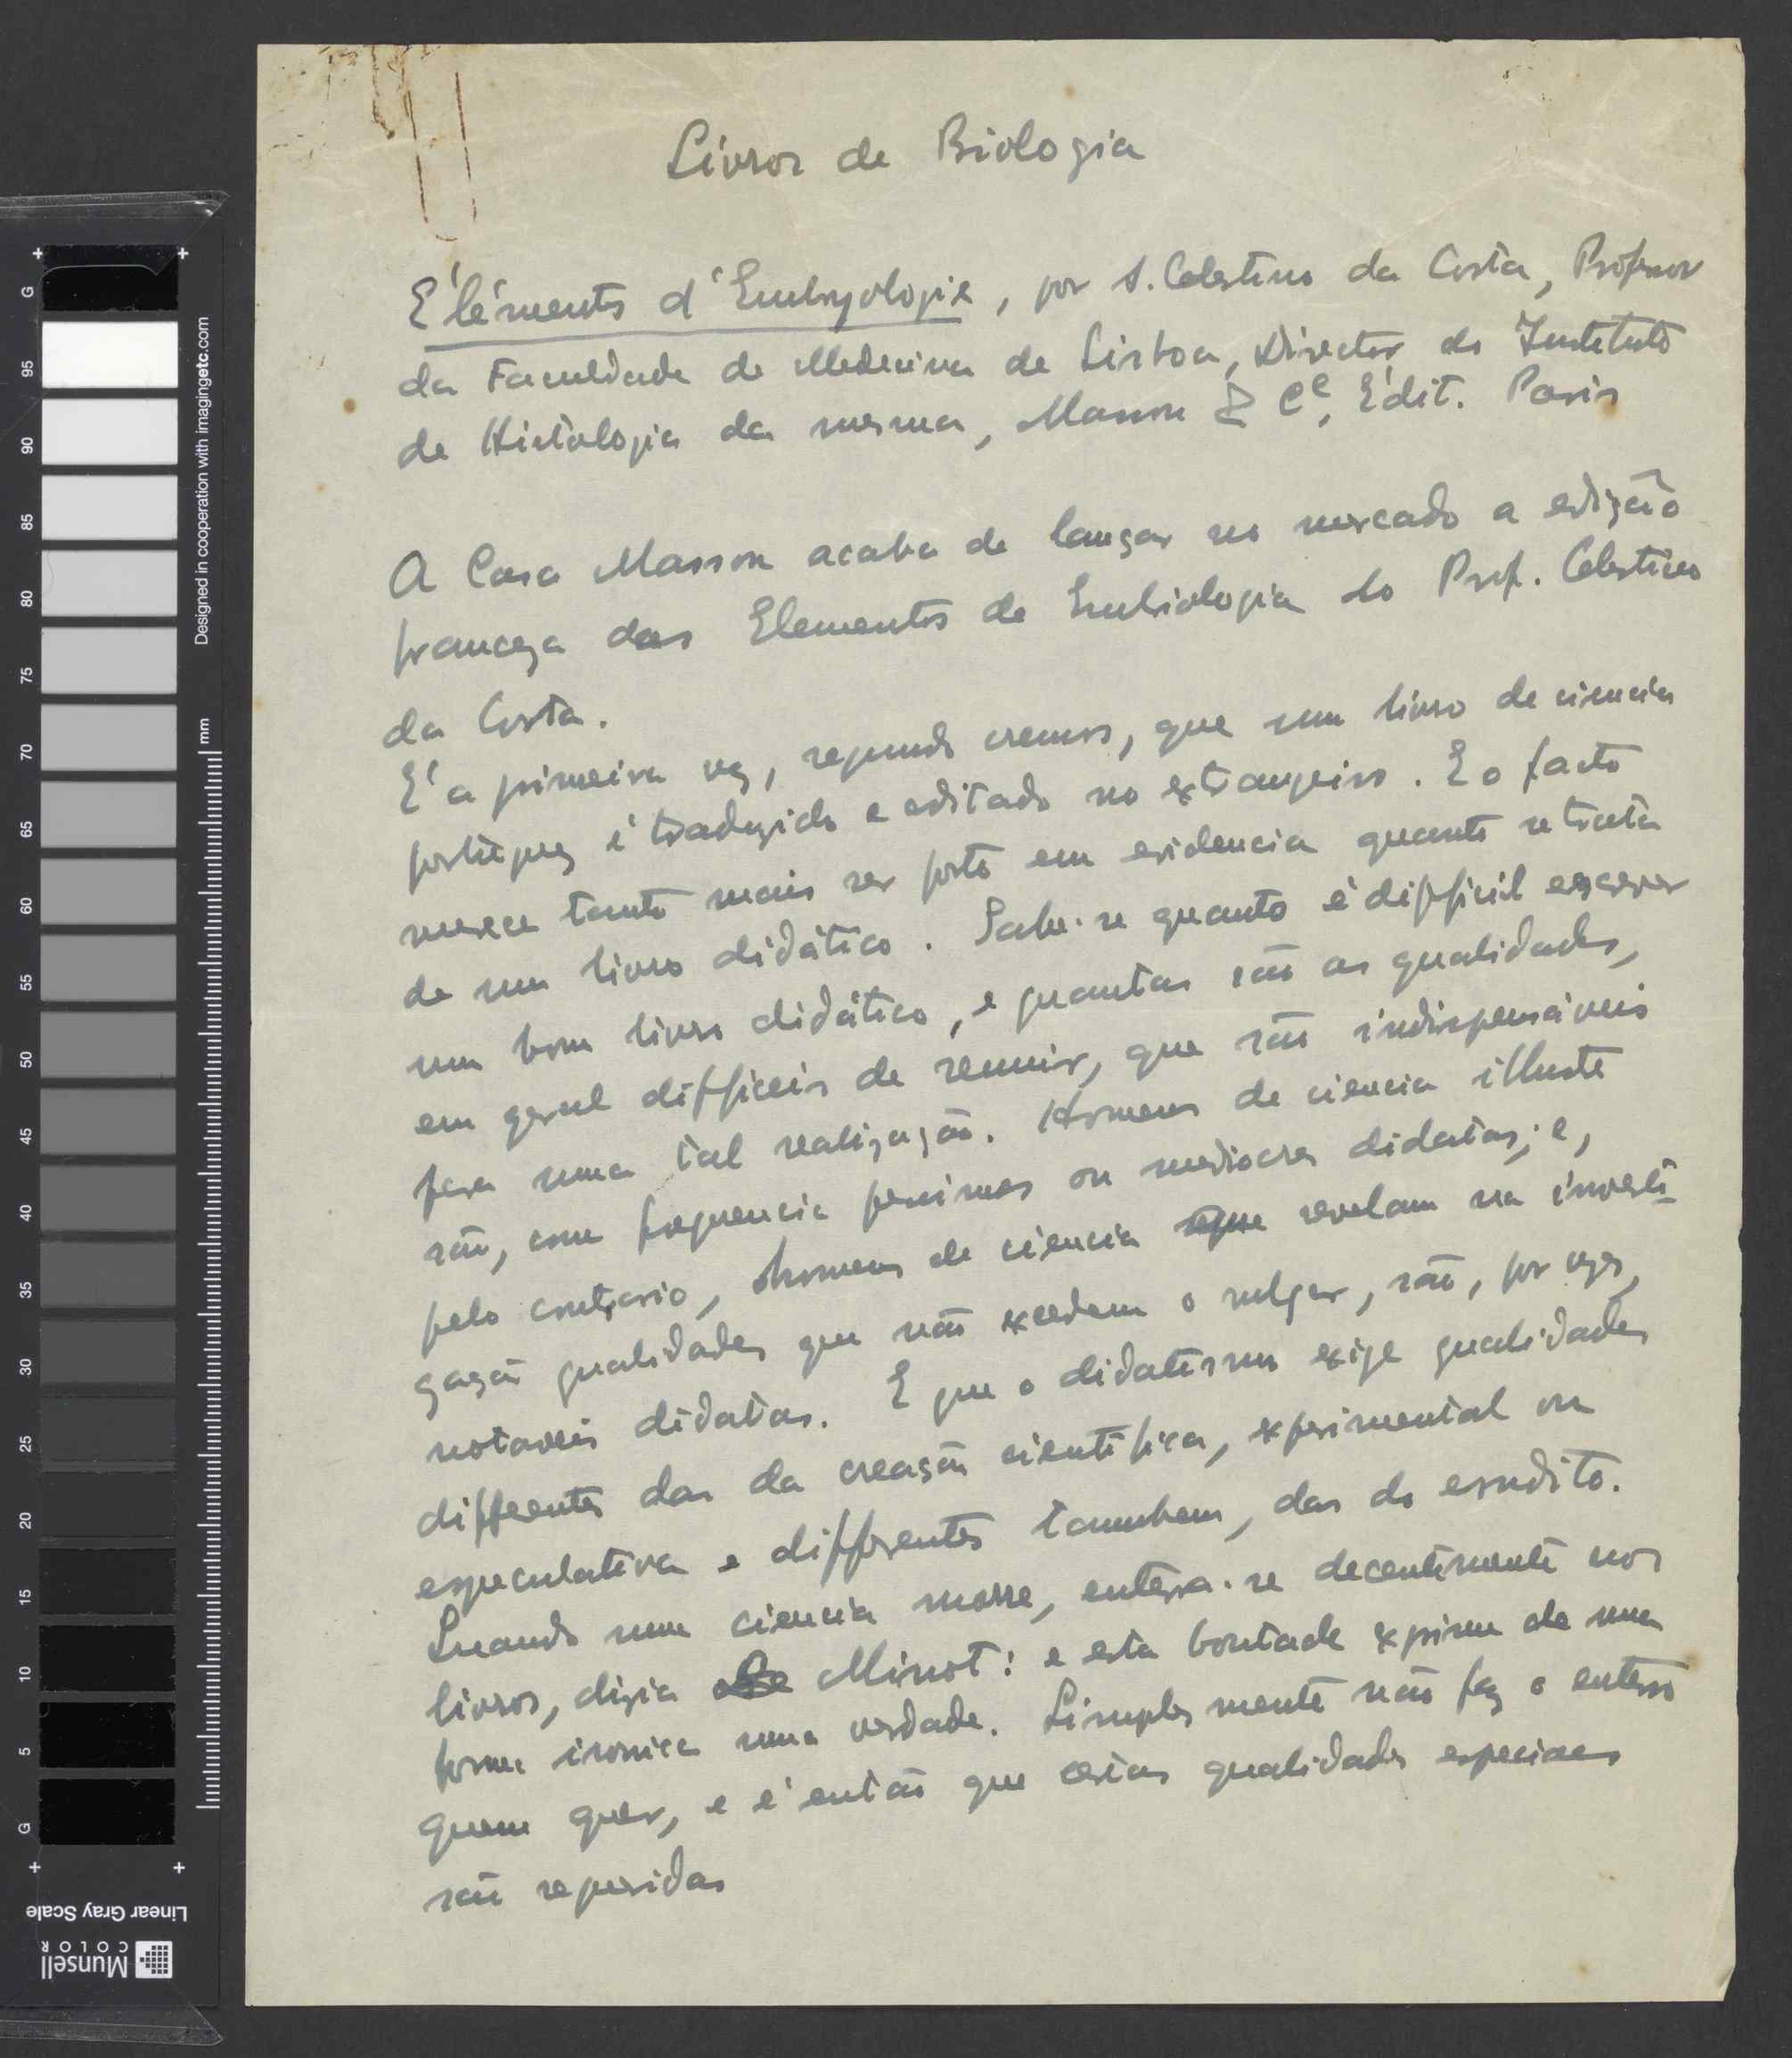 Livros de Biologia
Eléments d'Embryologie, por A. Celestino da Costa, Professor
da Faculdade de Medicina de Lisboa, Director do Instituto
de Histologia da mesma, Masson & Cᵉ, Édit. Paris
A Casa Masson acaba de lançar no mercado a edição
franceza dos Elementos de Embriologia do Prof. Celestino
da Costa.
É a primeira vez, segundo cremos, que um livro de ciencia
portuguez é traduzido e editado no extrangeiro. E o facto
merece tanto mais ser posto em evidencia quanto se trata
de um livro didático. Sabe-se quanto é difficil escrever
um bom livro didático, e quantas são as qualidades,
em geral difficeis de reunir, que são indispensáveis
para uma tal realização. Homens de ciencia illustres
são, com frequencia pessimos ou mediocres didatas; e,
pelo contrario, homens de ciencia que revelam na investi-
gação qualidades que não excedem o vulgar, são, por vezes,
notaveis didatas. E que o didatismo exige qualidades
differentes das da creação cientifica, experimental ou
especulativa e differentes tambem, das do erudito.
Quando uma ciencia morre, enterra-se decentemente nos
livros, dizia Minot: e esta boutade exprime de uma
forma ironica uma verdade. Simplesmente não faz o enterro
quem quer, e é então que certas qualidades especiaes
são requeridas
Designed in cooperation with imagingetc.com
mm
G 95 90 85 80 75 70 65 60 55 50 45 40 35 30 25 20 15 10 5 G
Linear Gray Scale
Munsell
COLOR